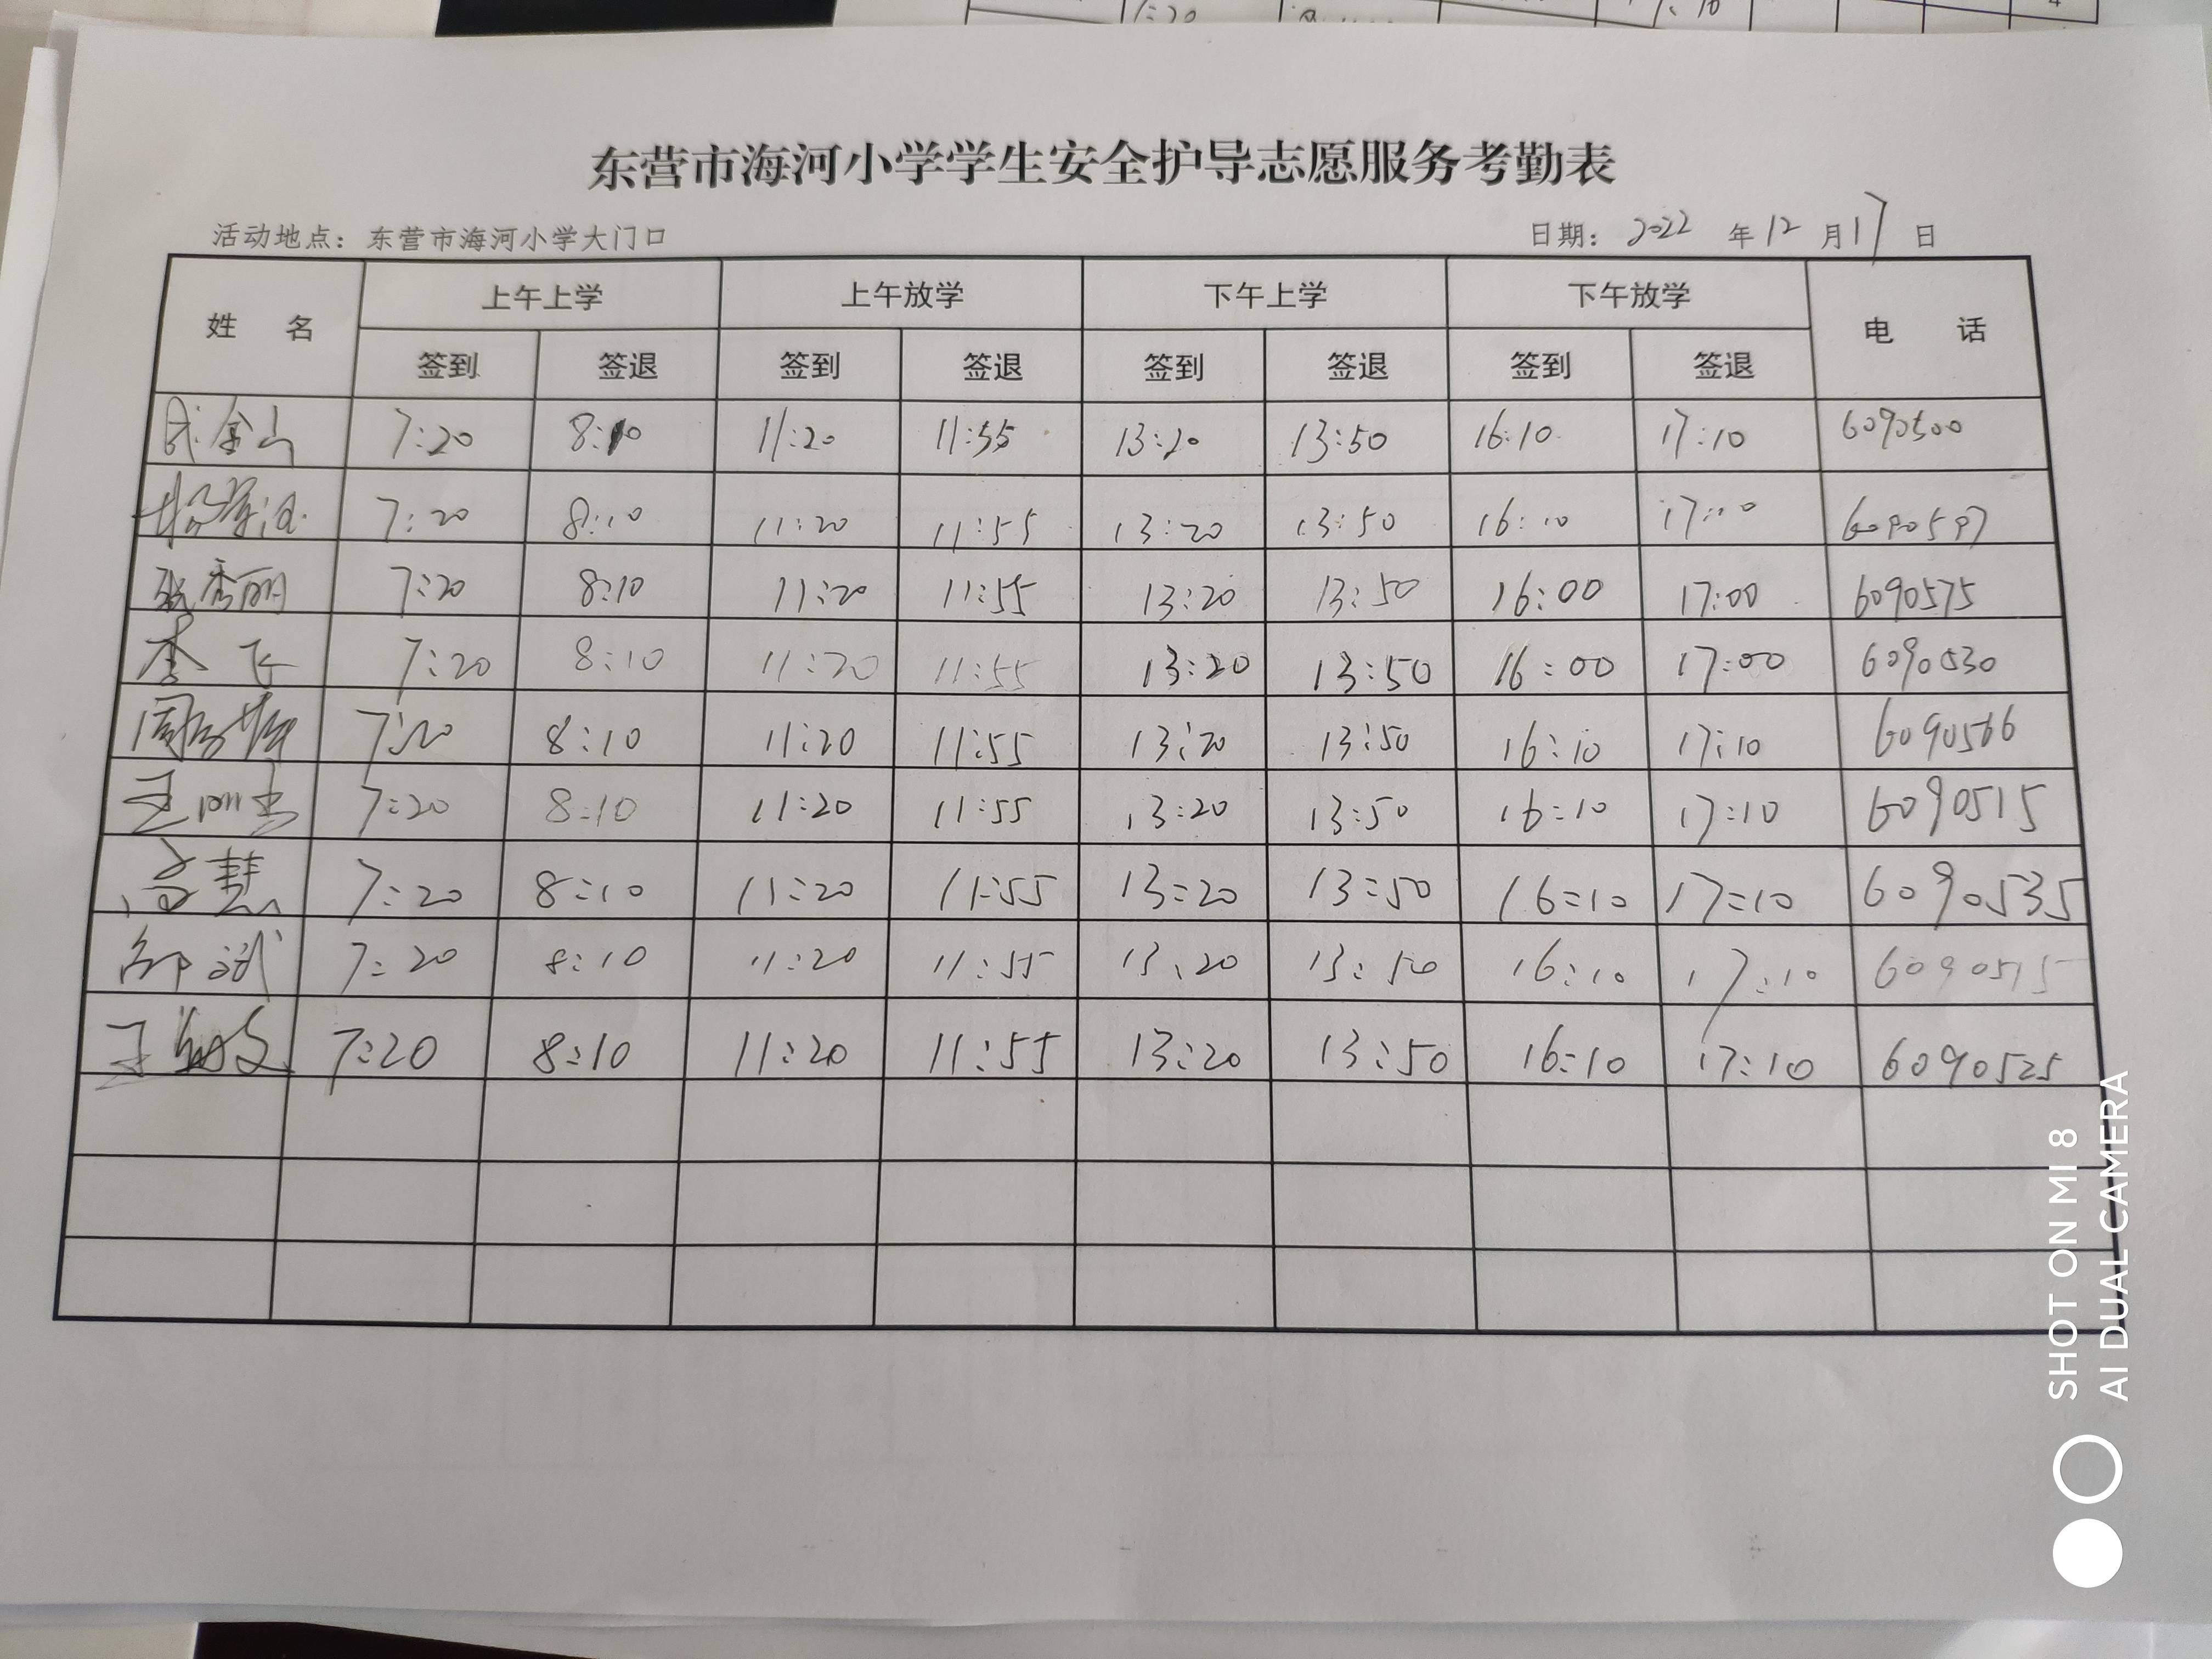 东营市海河小学学生安全护导志愿服务考勤表
活动地点：东营市海河小学大门口 日期：2022 年 12 月 17 日
姓 名 上午上学 上午放学 下午上学 下午放学 电 话
签到 签退 签到 签退 签到 签退 签到 签退
7:20 8:10 11:20 11:55 13:20 13:50 16:10 17:10 6090500
7:20 8:10 11:20 11:55 13:20 13:50 16:10 17:10 6090597
张秀丽 7:20 8:10 11:20 11:55 13:20 13:50 16:00 17:00 6090575
李飞 7:20 8:10 11:20 11:55 13:20 13:50 16:00 17:00 6090530
7:20 8:10 11:20 11:55 13:20 13:50 16:10 17:10 6090566
7:20 8:10 11:20 11:55 13:20 13:50 16:10 17:10 6090515
高慧 7:20 8:10 11:20 11:55 13:20 13:50 16:10 17:10 6090535
7:20 8:10 11:20 11:55 13:20 13:50 16:10 17:10 6090515
7:20 8:10 11:20 11:55 13:20 13:50 16:10 17:10 6090525
SHOT ON MI 8
AI DUAL CAMERA